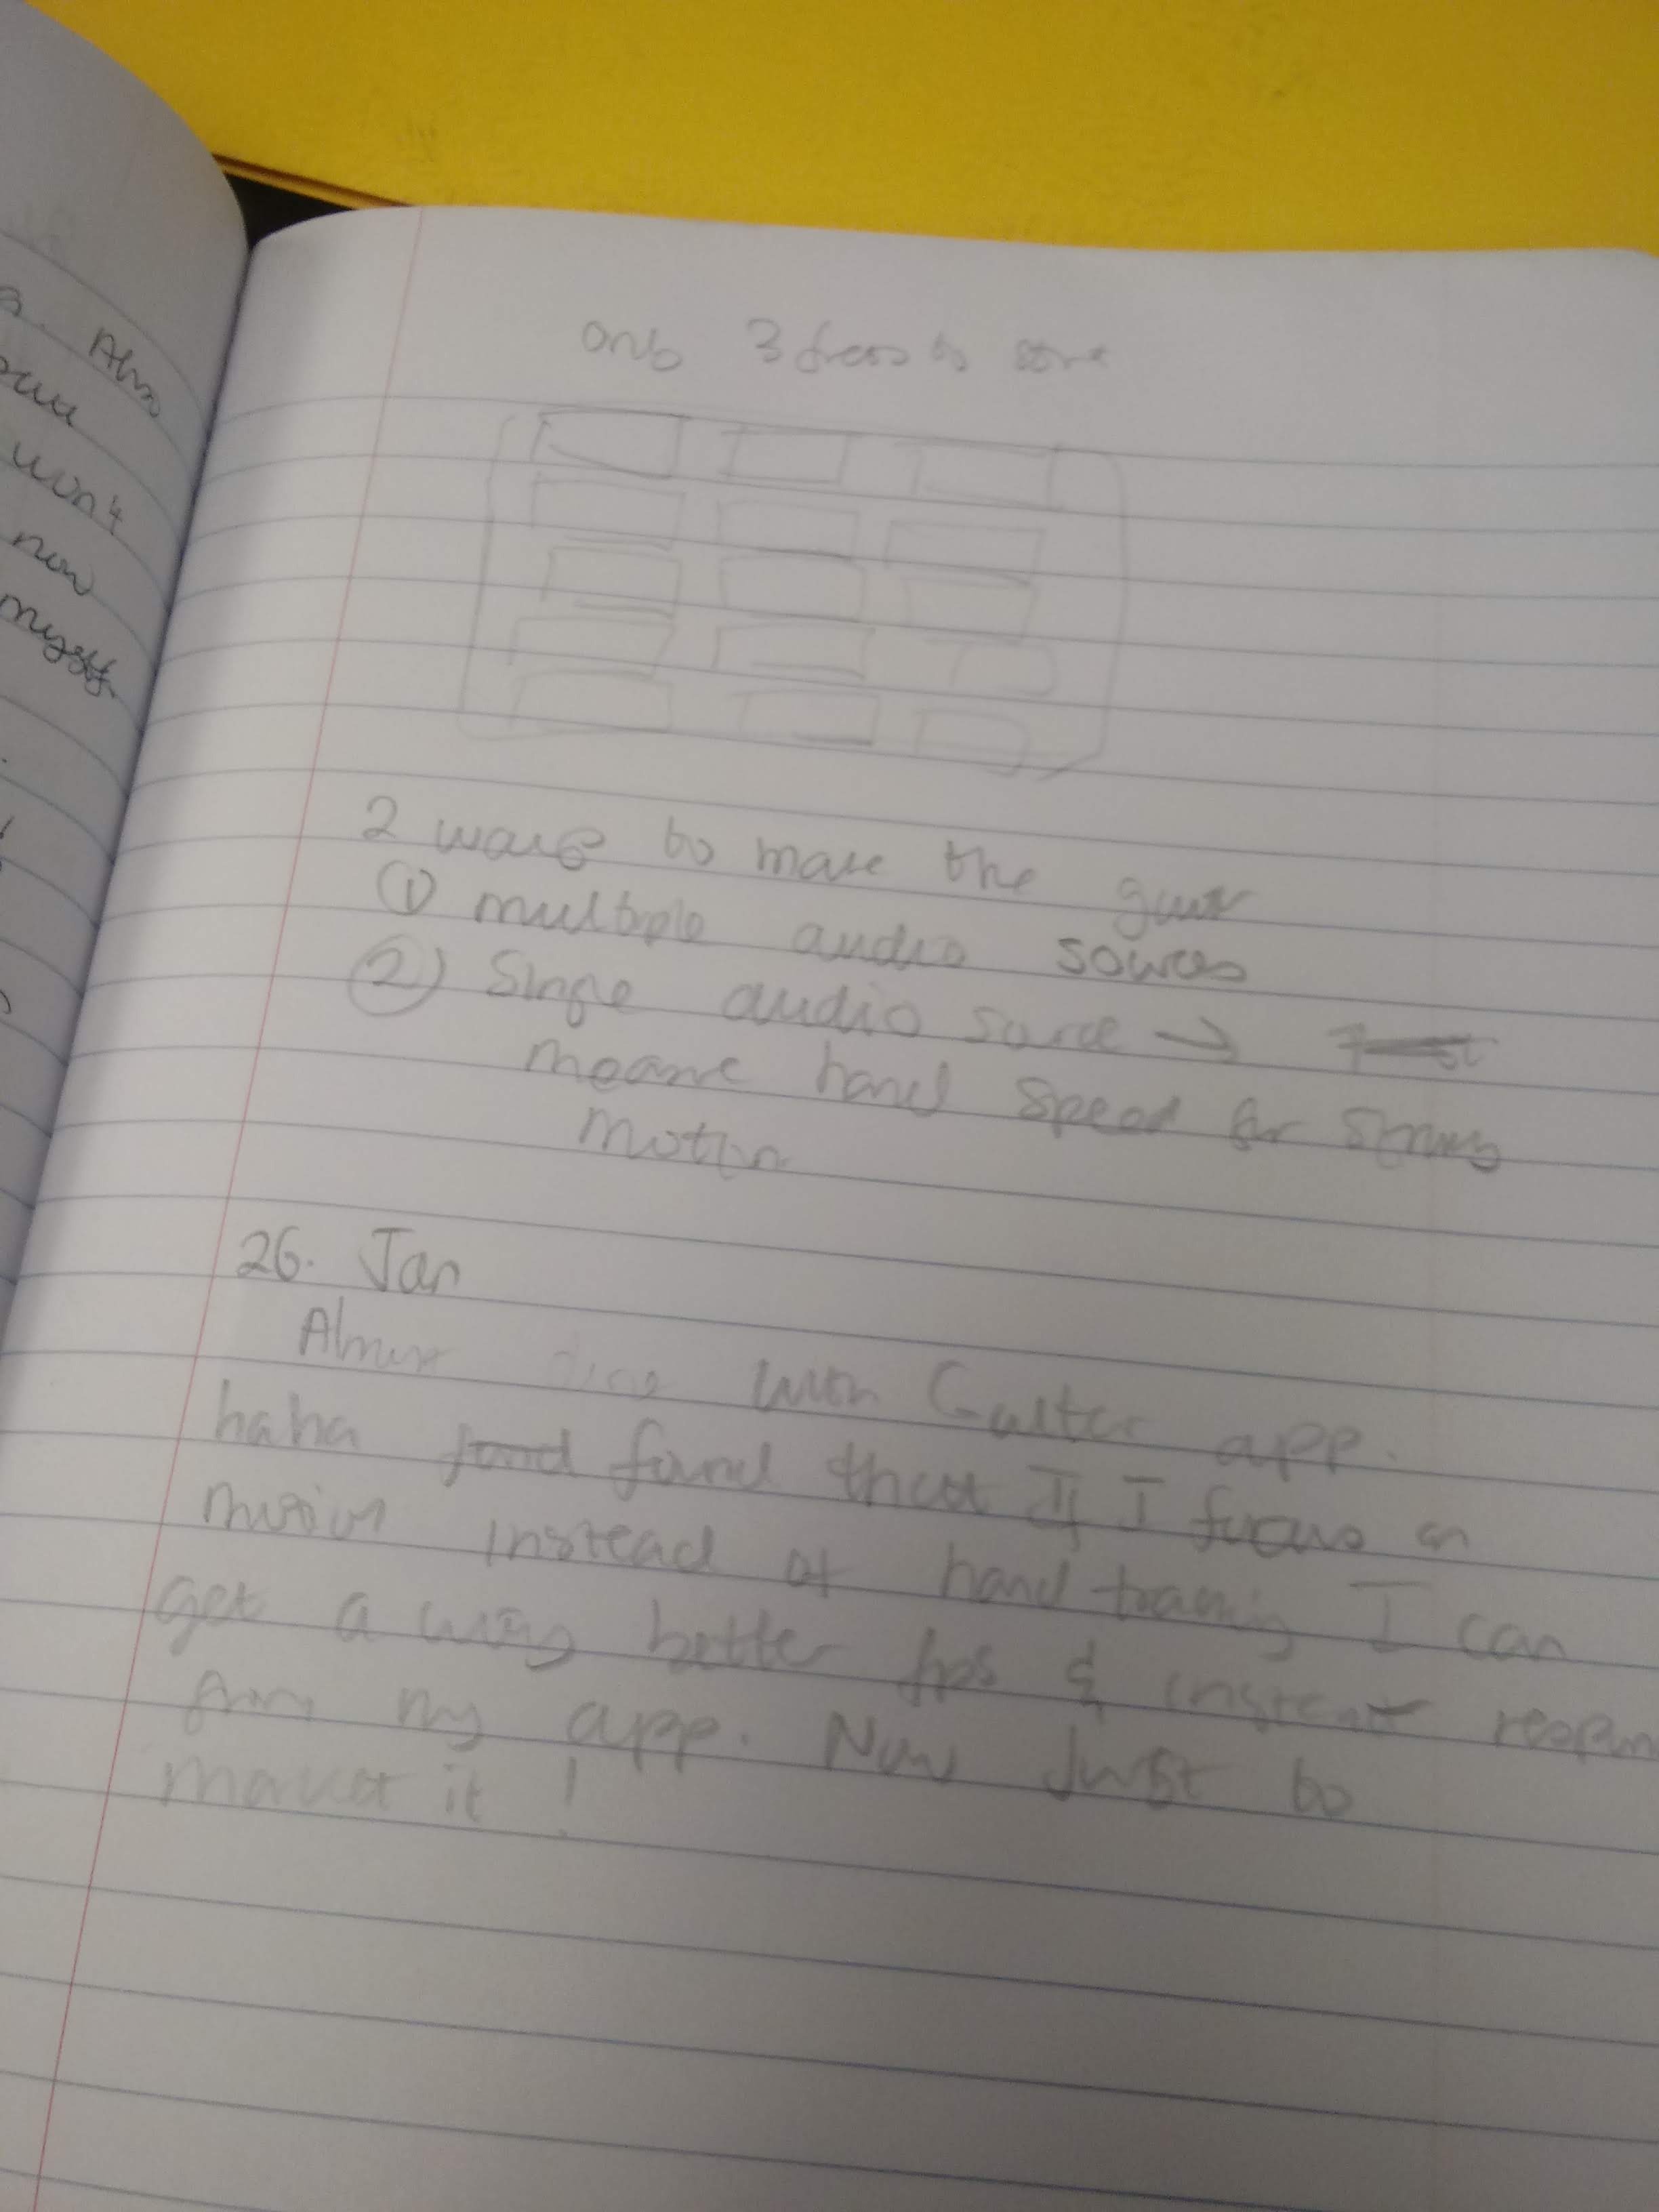 Also
won't
now
myself.
only 3 frets to start
2 ways to make the guitar
① multiple audio sources
② Single audio source →
means hand speed for strums
motion
26. Jan
Almost with Guitar app.
haha found found that If I focus on
instead of hand tracking I can
get a way better fps & instant
my app. Now Just to
market it !